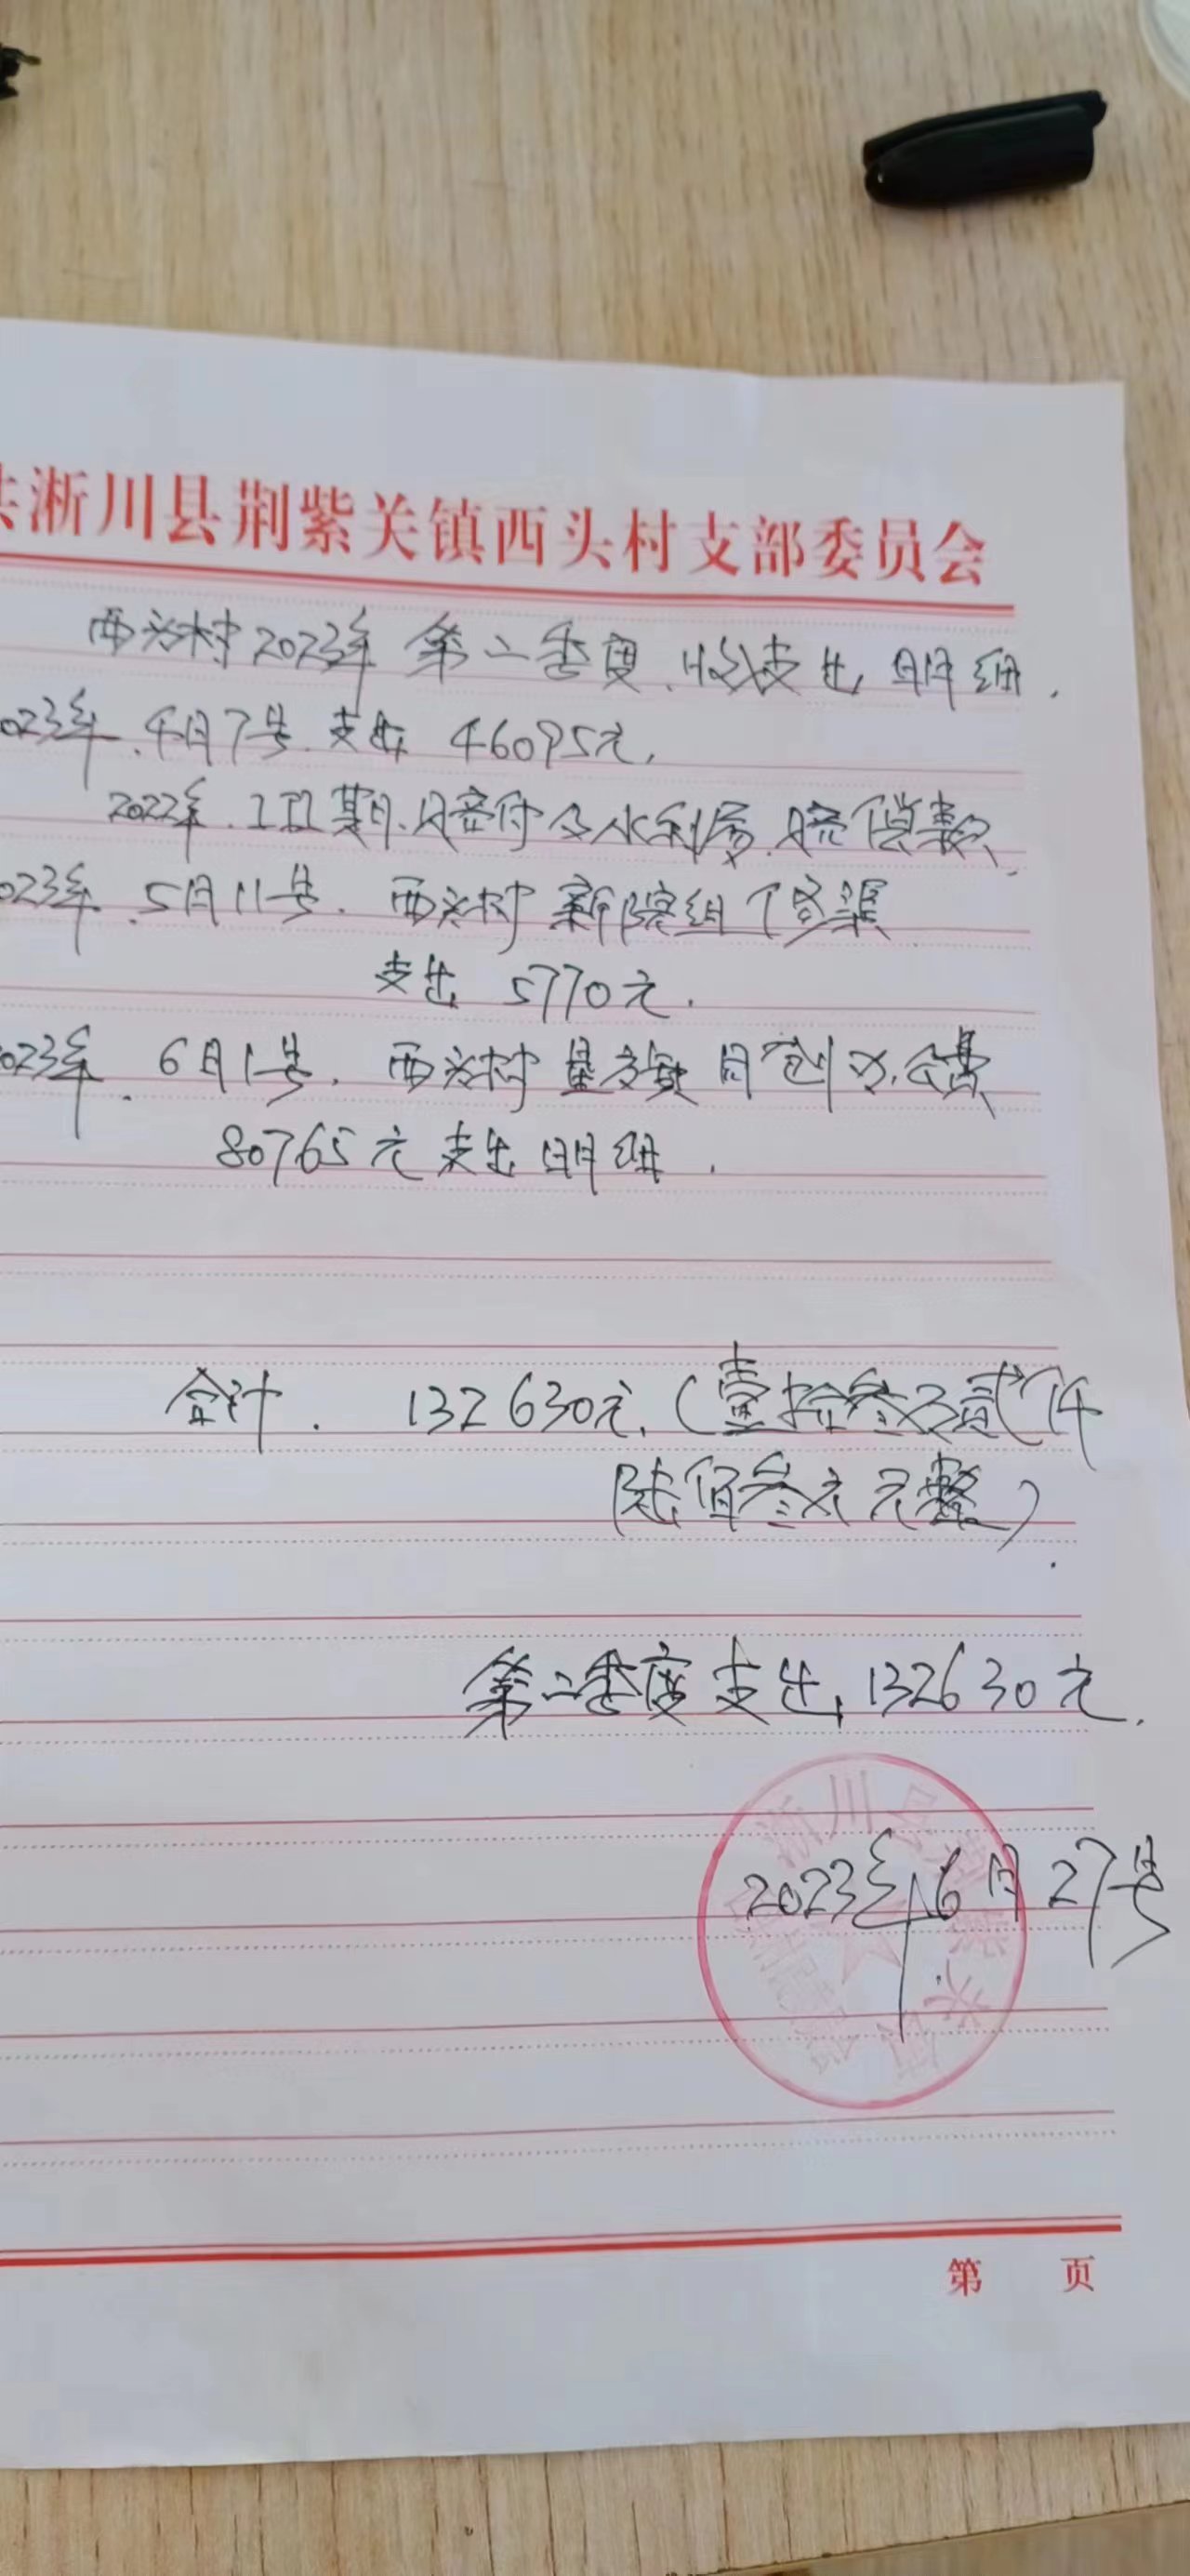 共淅川县荆紫关镇西头村支部委员会
西头村2023年第二季度.收支出明细.
023年.4月7号.支出 46095元.
2022年.I II期.赔付及水利局.赔偿款.
023年.5月11号.西头村新院组修渠
支出 5770元.
023年.6月1号.西头村 办公费
80765元支出明细.
合计.132630元.(壹拾叁万贰仟
陆佰叁元元整)
第二季度支出,132630元.
2023年6月27号
淅川县
第 页